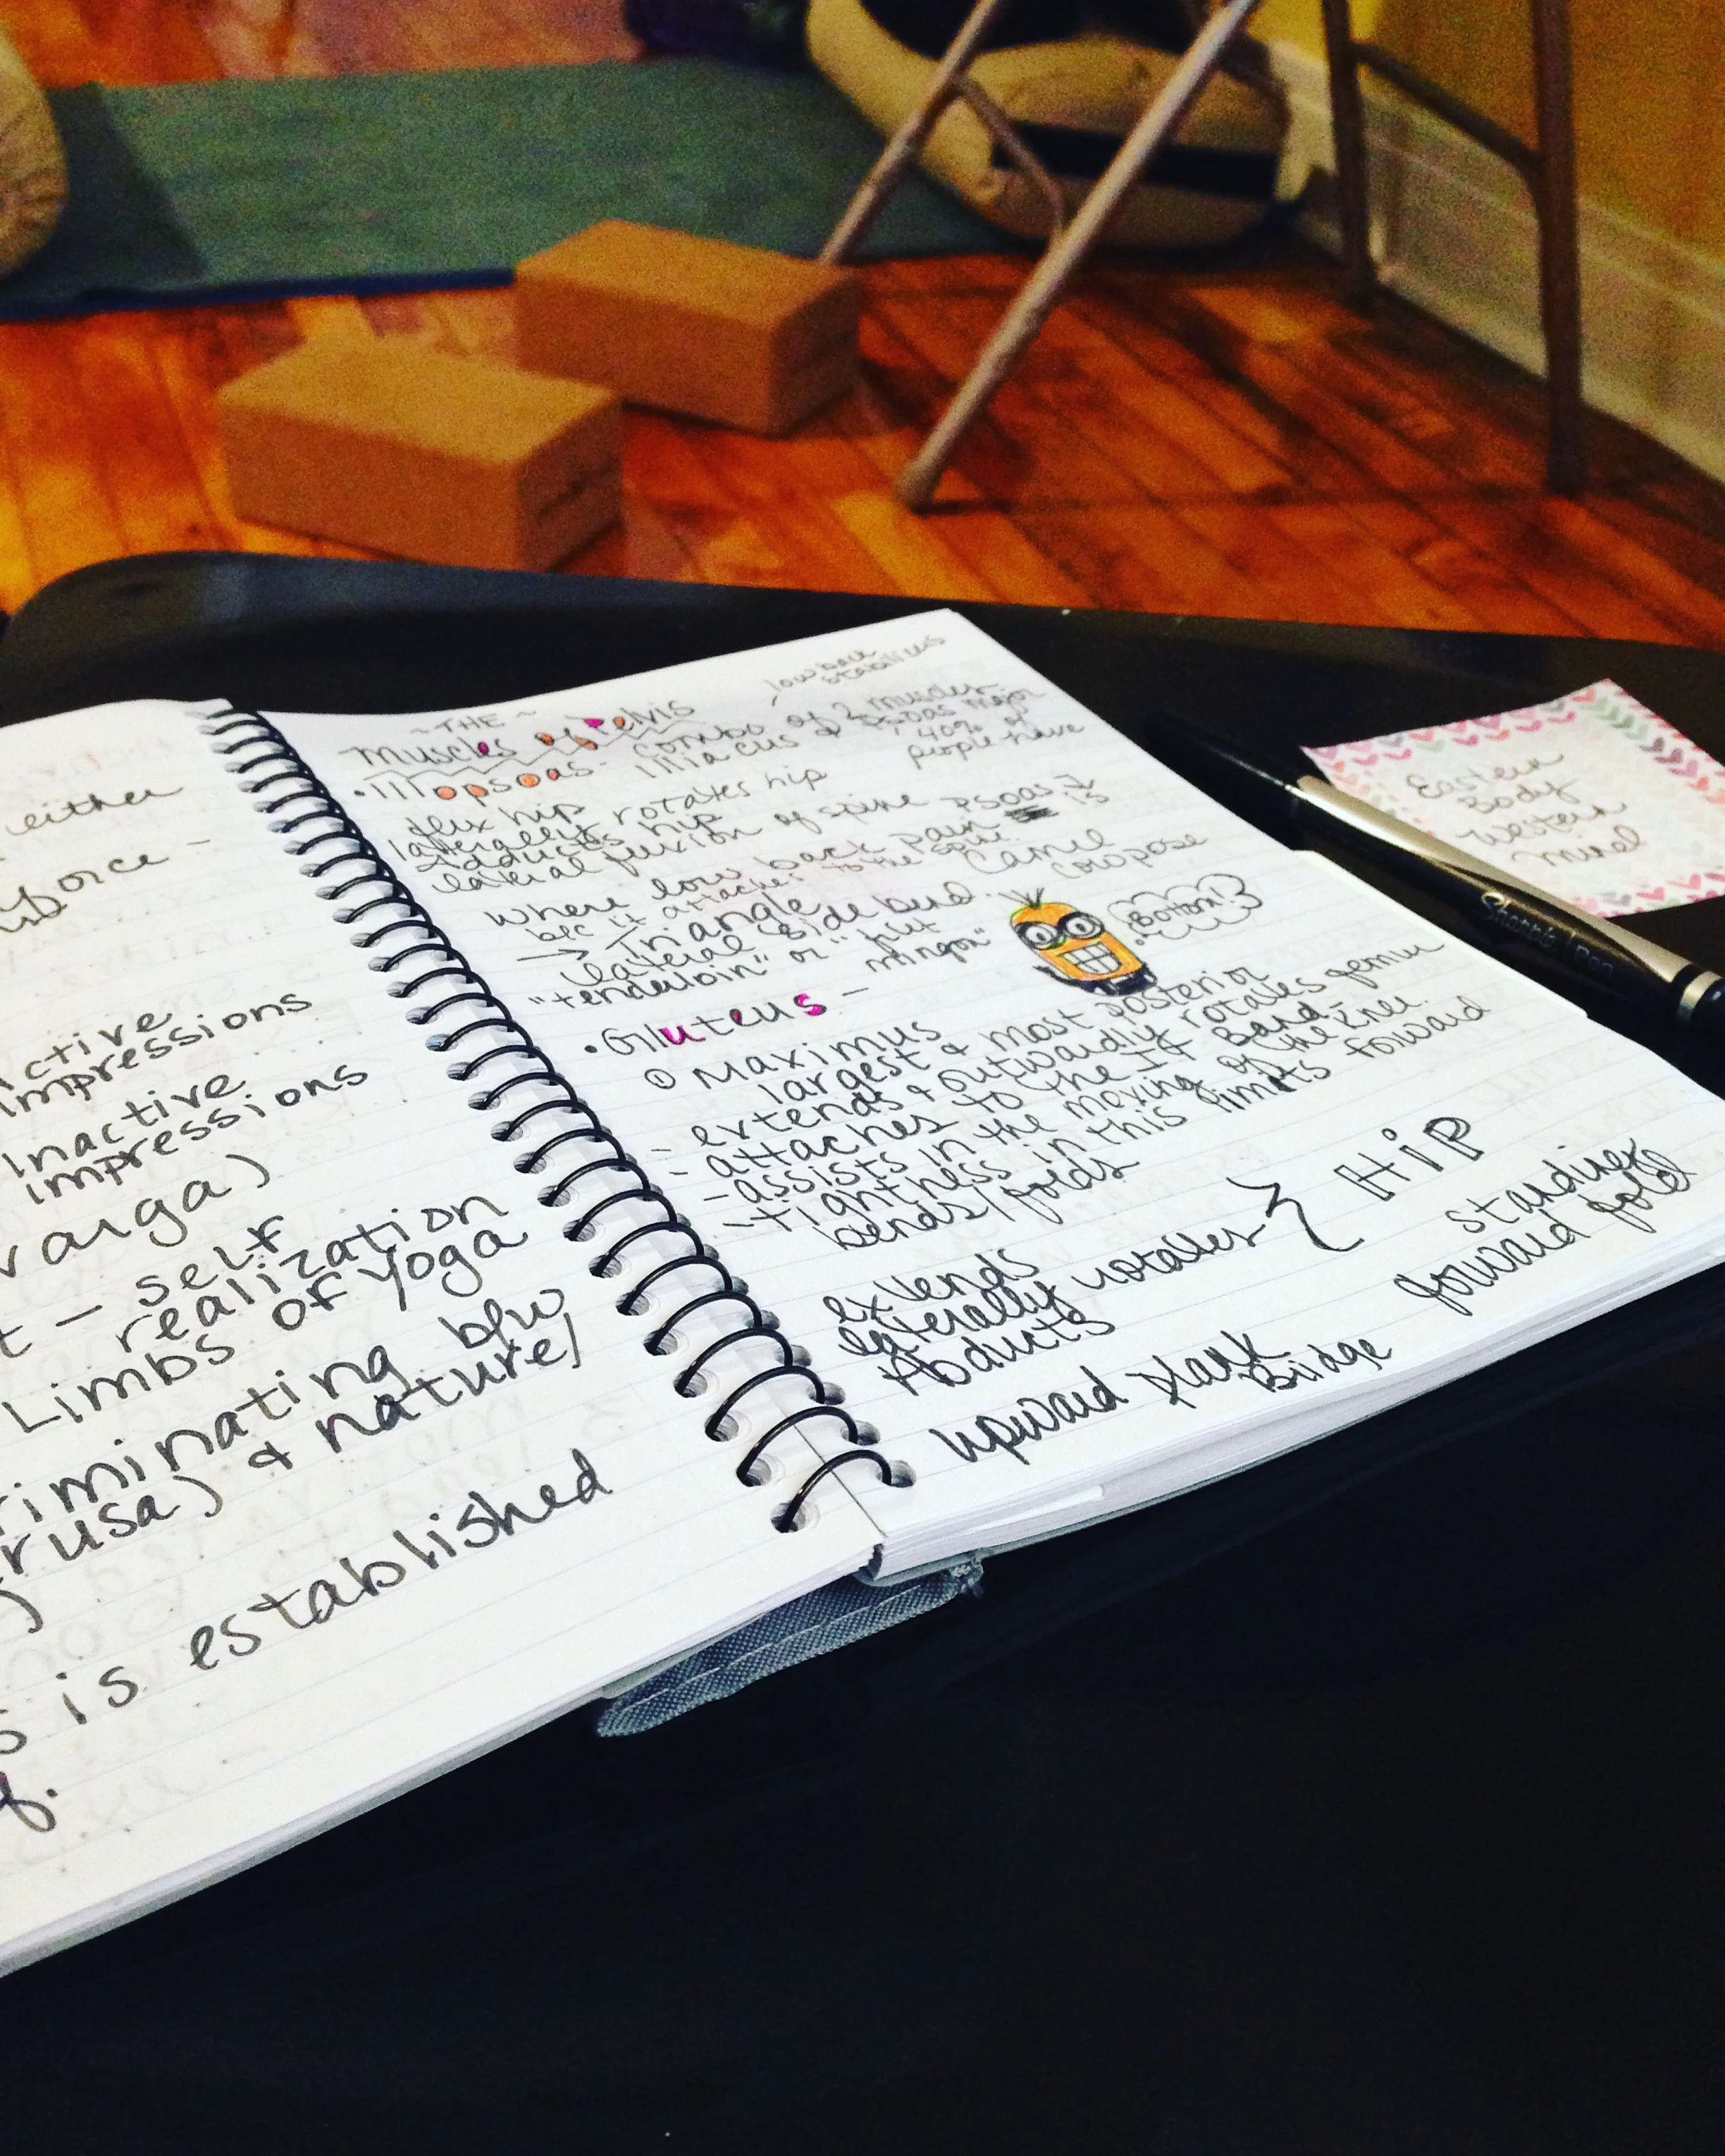 either
force -
active
impressions
Inactive
impressions
varga)
t - self
realization
Limbs of Yoga
riminating b/w
rusa) & nature/
s is established
f.
low back
stabilizers
~ THE ~
Muscles of Pelvis
• Iliopsoas - combo of 2 muscles
Illiacus & Psoas Major
40% of
people have
flex hip
laterally rotates hip
Adducts hip
lateral flexion of spine
where low back pain is
b/c it attaches to the spine.
→ Triangle Camel
lateral side bend. Cow pose
"tenderloin" or "filet
mingon"
Bottom!
• Gluteus -
① Maximus
largest & most posterior
- extends & outwardly rotates femur
- attaches to the IT Band.
- assists in the moving of the knee.
- tightness in this limits forward
bends/folds
extends
laterally rotates } HiP
Abducts
upward plank
Bridge
standing
forward fold
Eastern
Body
Western
Mind
Sharpie Pen